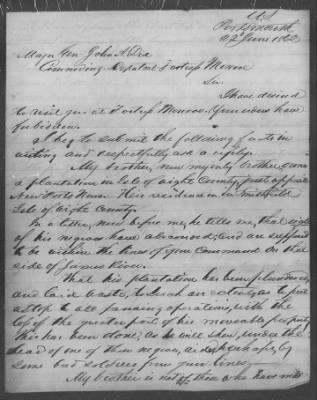 Portsmouth
2d June 1863
Major Gen. John A. Dix
Comm'ding Dep't at Fortress Monroe
Sir
I have desired
to visit you at Fortress Monroe. Your orders have
forbidden.
I beg to submit the following facts in
writing and respectfully ask a reply.
My brother, now my only brother, owns
a plantation in Isle of Wight County, just opposite
New Ports News. His residence is in Smithfield
Isle of Wight County.
In a letter, now before me, he tells me, that
of his negroes have absconded; and are supposed
to be within the lines of your command on that
side of James River.
That his plantation has been plundered
and laid waste, to such an extent, as to put
a stop to all farming operations, with the
loss of the greater part of his movable property.
This has been done, as he will show, under the
lead of one of these negroes, aided perhaps, by
some bad soldiers from your lines.
My brother is not of those who have